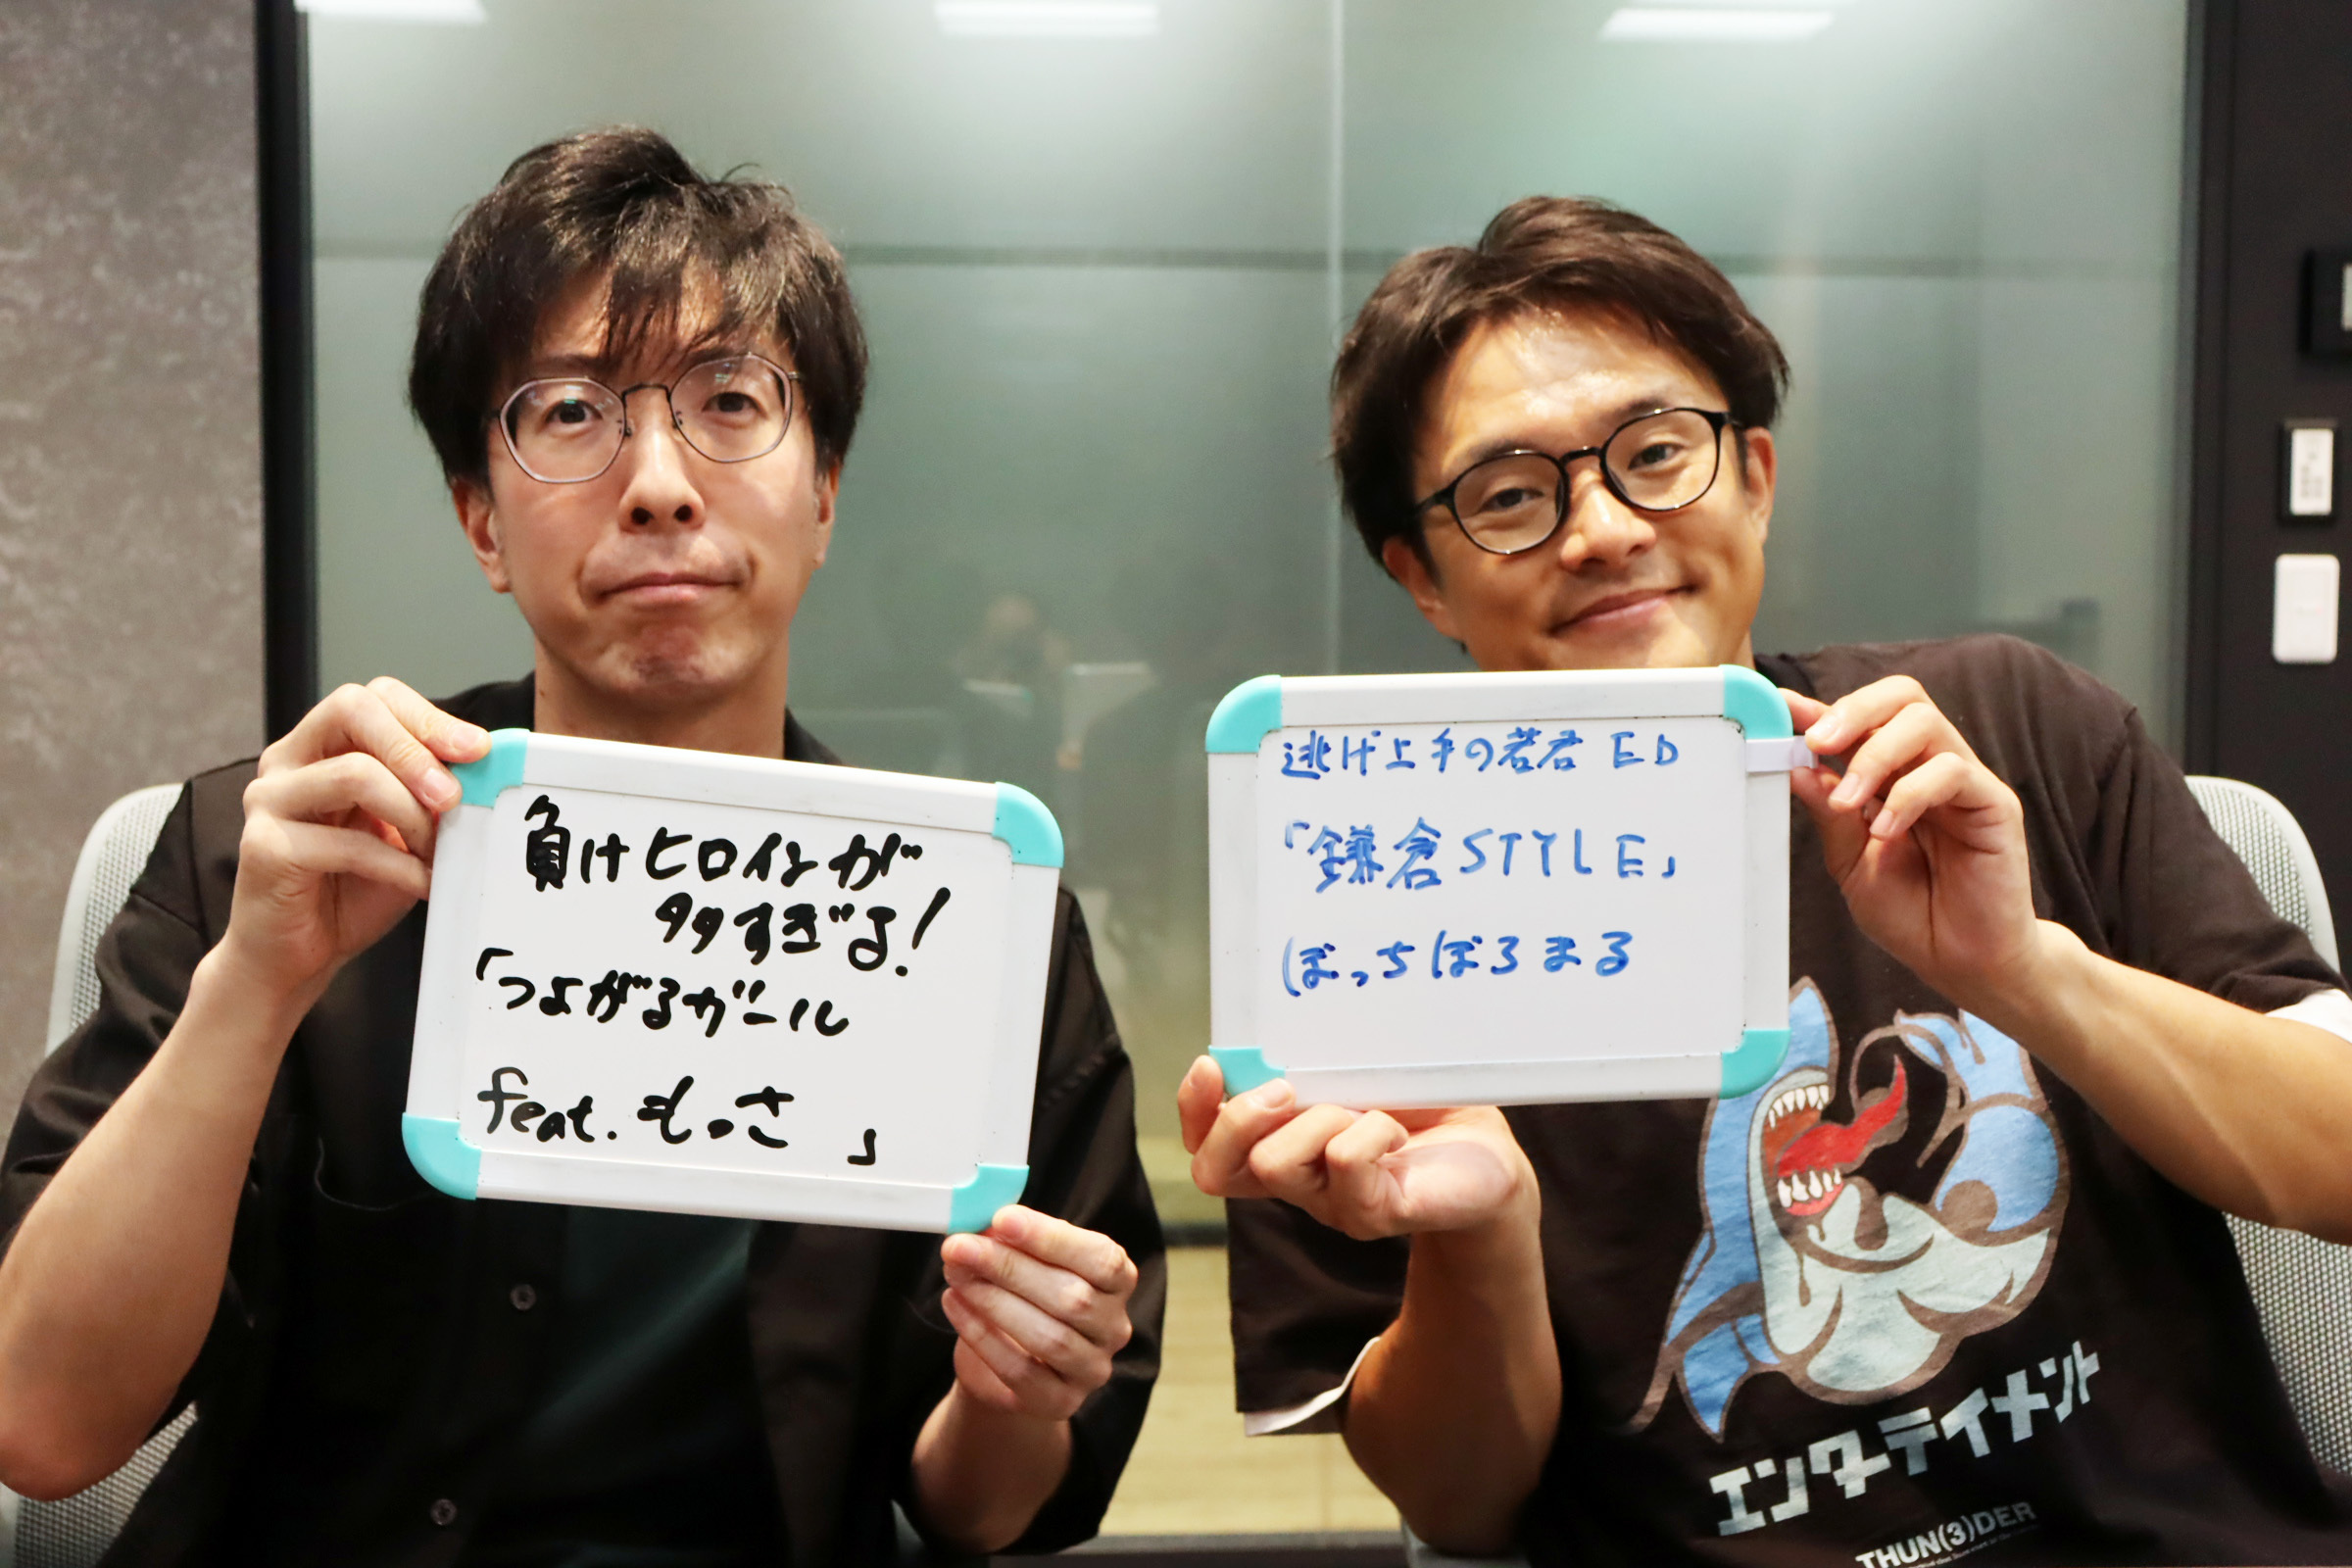 負けヒロインが
多すぎる!
「つよがるガール
feat.もっさ 」
逃げ上手の若君 ED
「鎌倉STYLE」
ぼっちぼろまる
エンターテイメント
THUN(3)DER